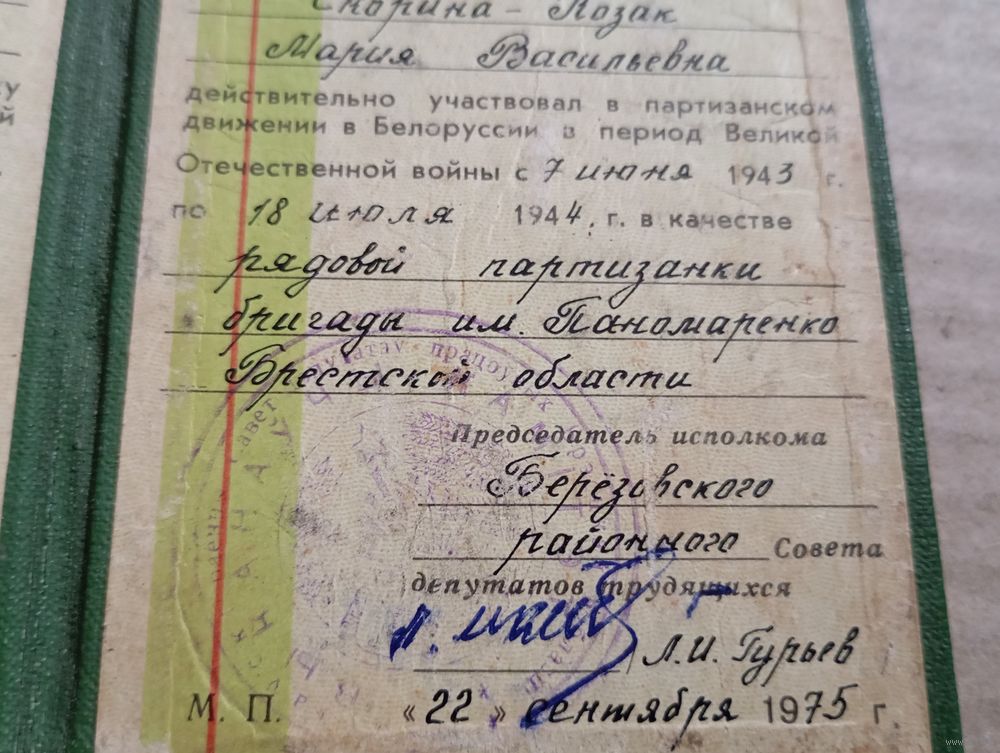 Скорина - Козак
Мария Васильевна
действительно участвовал в партизанском
движении в Белоруссии в период Великой
Отечественной войны с 7 июня 1943 г.
по 18 июля 1944. г. в качестве
рядовой партизанки
бригады им. Паномаренко
Брестской области
Председатель исполкома
Берёзовского
районного Совета
депутатов трудящихся
Л.И. Гурьев
М. П. «22» сентября 1975 г.